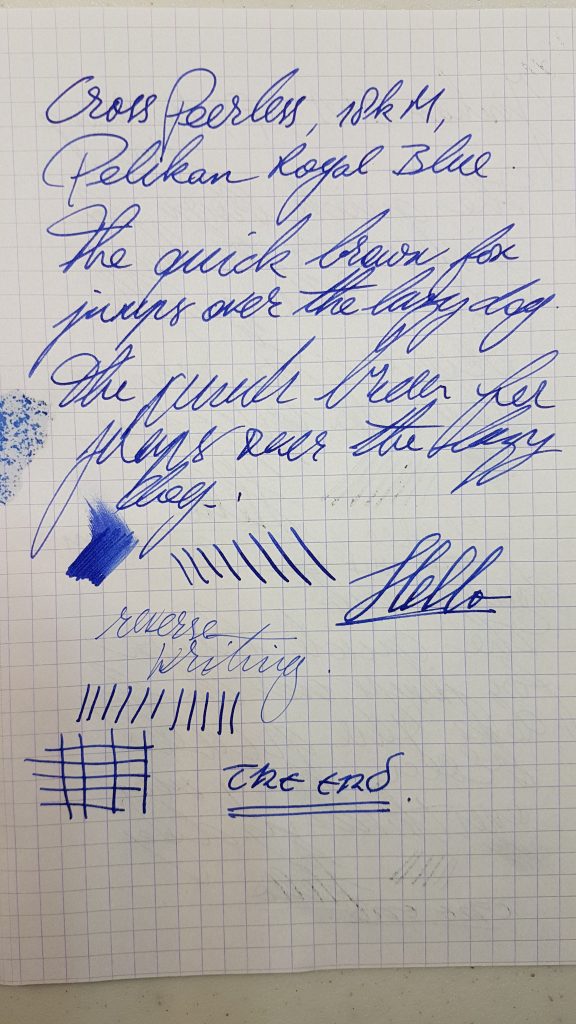 Cross Peerless, 18k M,
Pelikan Royal Blue
The quick brown fox
jumps over the lazy dog.
The quick brown fox
jumps over the lazy
dog.
Hello
reverse
writing.
THE END.